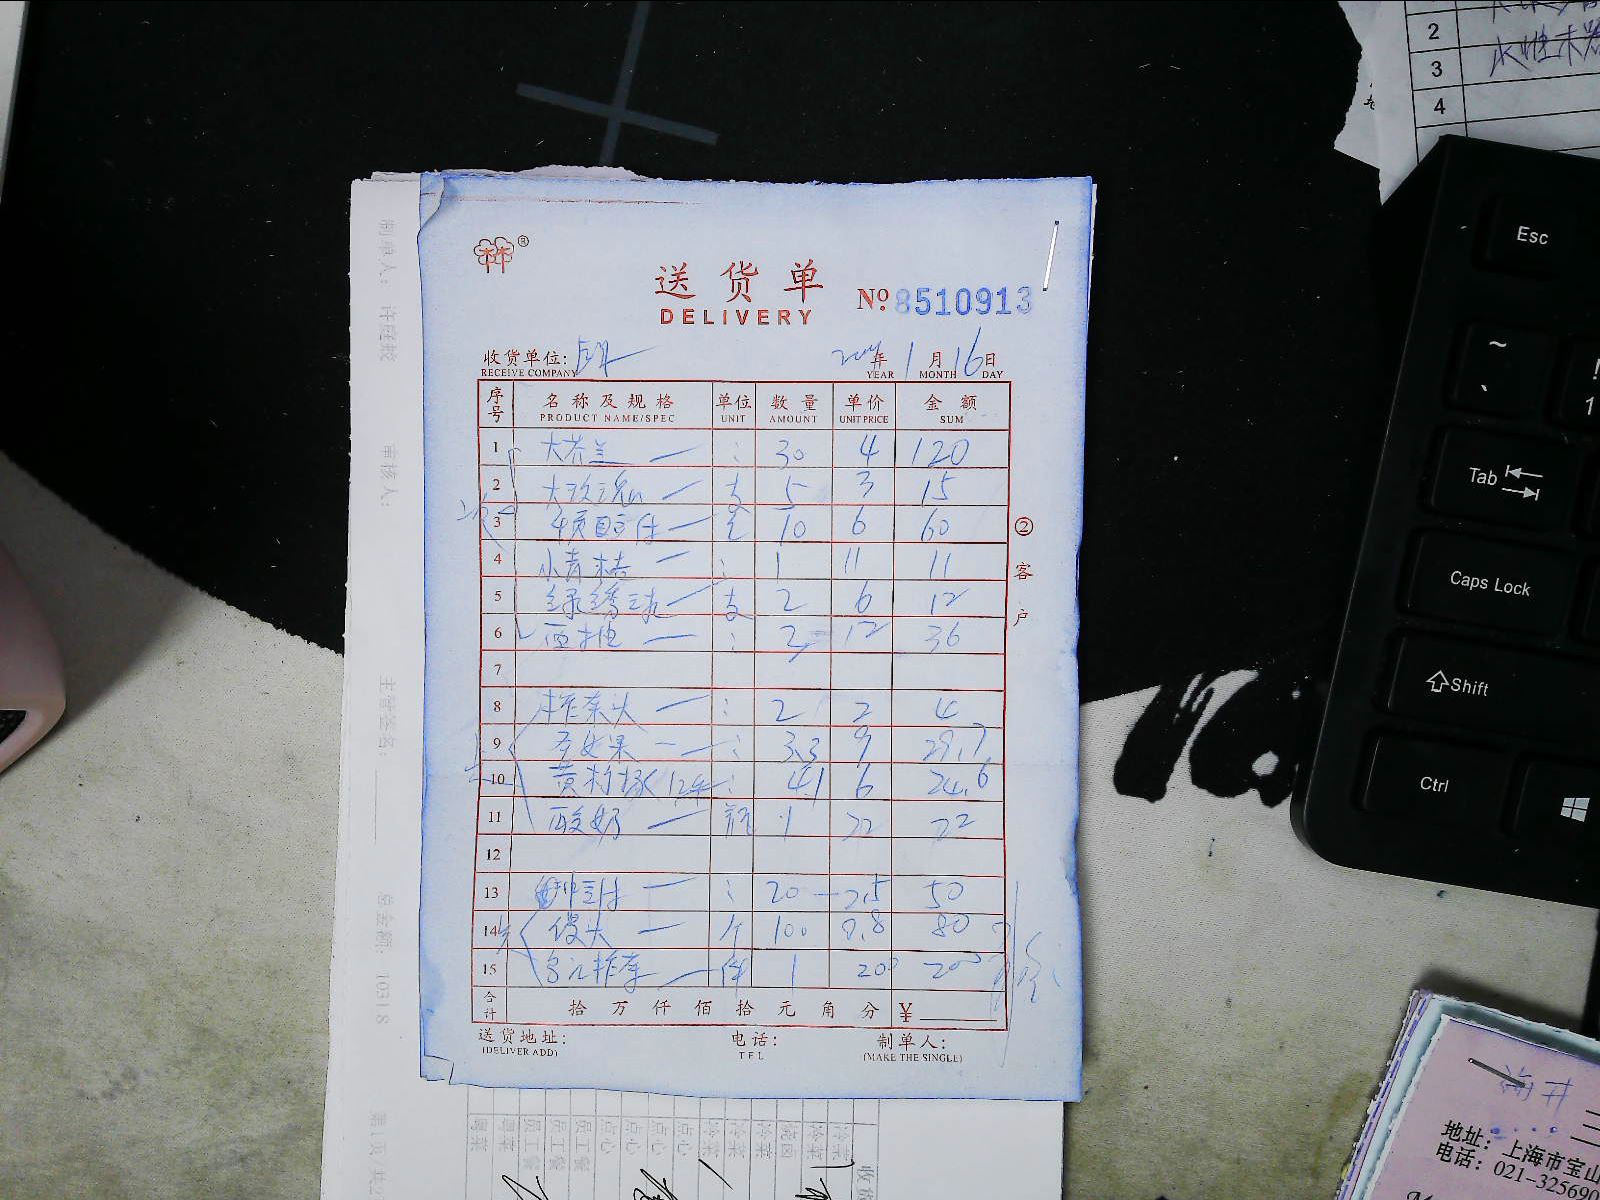 送货单
DELIVERY
№ 8510913
收货单位:
RECEIVE COMPANY
年 1 月 16 日
YEAR MONTH DAY
序号 名称及规格 单位 数量 单价 金额
PRODUCT NAME/SPEC UNIT AMOUNT UNIT PRICE SUM
1 大芥兰 : 30 4 120
2 大玫瑰 支 5 3 15
3 10 6 60
4 小青桔 : 1 11 11
5 绿绣球 支 2 6 12
6 西柚 : 12 36
7
8 榨菜头 : 2 2 4
9 圣女果 : 3.3 9 29.7
10 : 4.1 6 24.6
11 酸奶 瓶 1 22 22
12
13 : 20 2.5 50
14 馒头 个 100 0.8 80
15 乌江榨菜 件 1 200 200
合计 拾万仟佰拾元角分 ¥
送货地址: 电话: 制单人:
(DELIVER ADD) TEL (MAKE THE SINGLE)
② 客户
制单人:
审核人:
主管签名:
总金额: 10318
2
3
4
Esc
~
!
1
Tab
Caps Lock
Shift
Ctrl
地址: 上海市宝山
电话: 021-325690